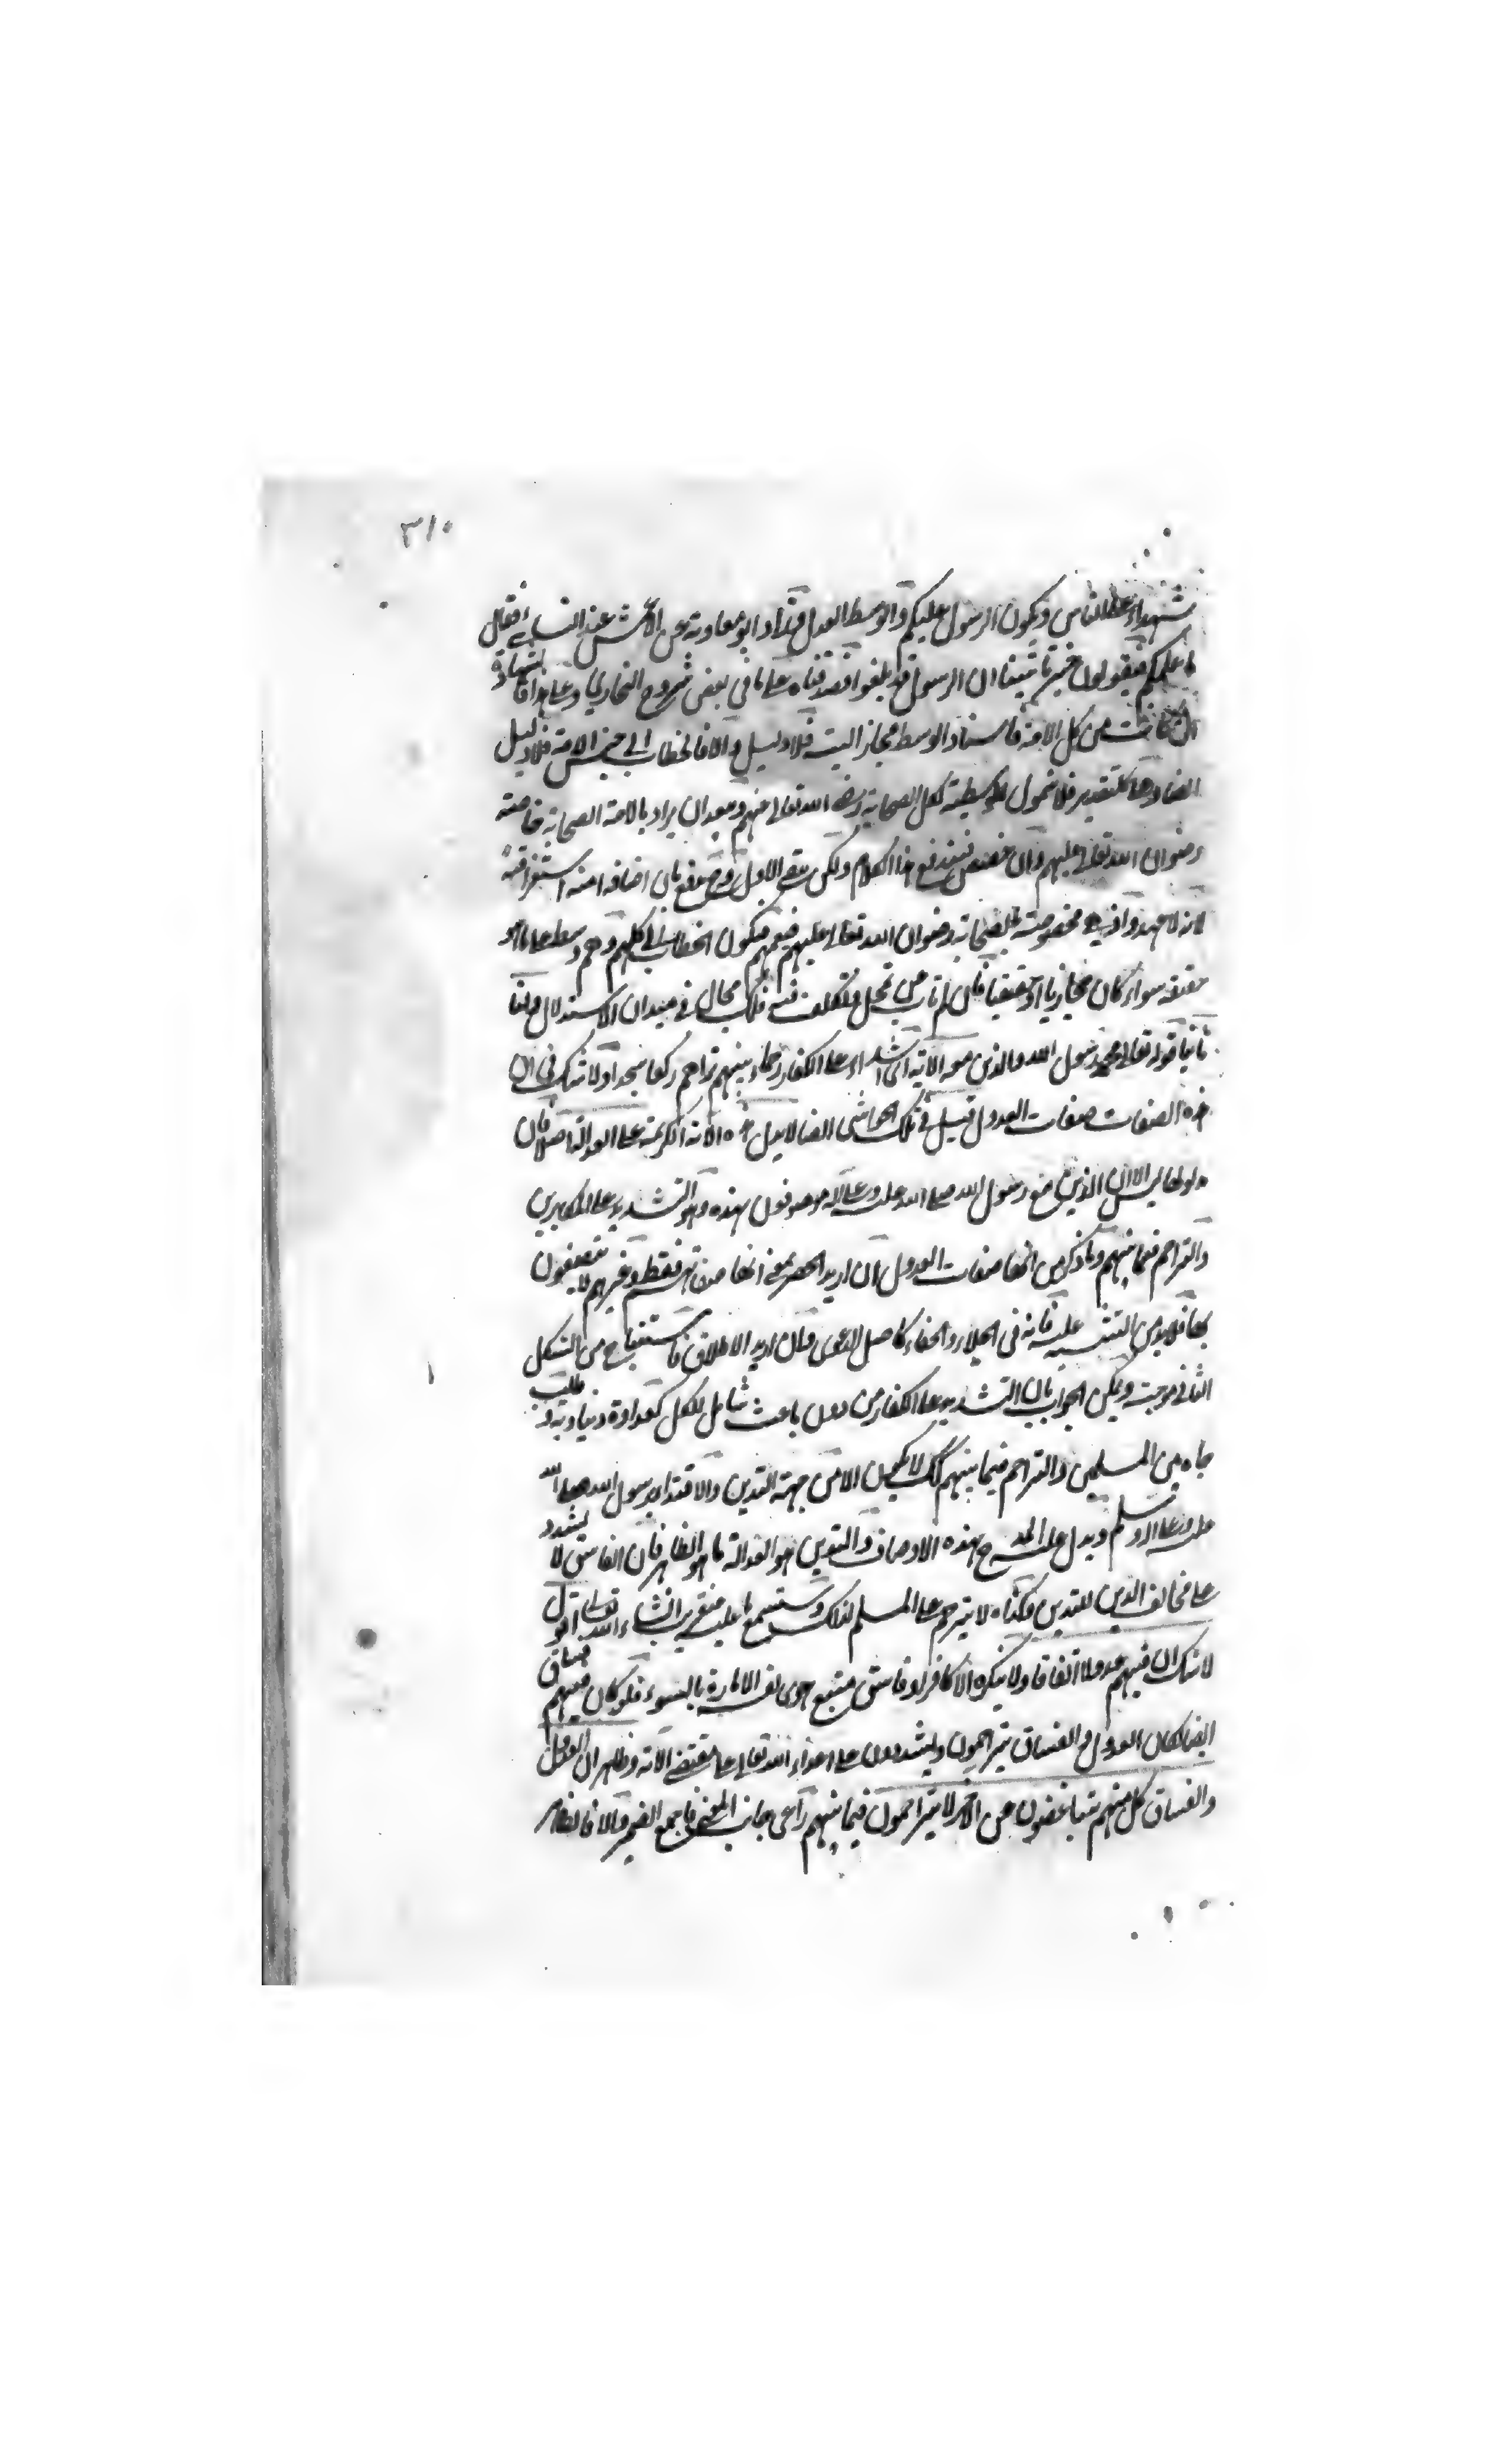 ٣١٠
شهداء على الناس ويكون الرسول عليكم والوسط العدل وزاد ابو معاوية عن الاعمش عند النسائي فقال
ما علمكم فيقولون خبرنا نبينا ان الرسول قد بلغوا فصدقناه على ما في بعض شروح البخاري وعلى هذا فالشهادة
ان كانت من كل الامة فاسناد الوسط مجاز البتة فلا دليل والا فالخطاب الى جنس الامة فلا دليل
ايضا وهما كلتقدير فلا شمول للوسطية لكل الصحابة رضي الله تعالى عنهم وبعد ان يراد بالامة الصحابة خاصة
رضوان الله تعالى عليهم وان خصص فيندفع هذا الكلام ولكن بقي الاول وهو مدفوع بان اضافة امة استغراقية
لانه لا عهد واذ مخصوصة بالصحابة رضوان الله تعالى عليهم فيعمهم فيكون الخطاب الى كلهم وهم وسط على ما هو
حقيقة سواء كان مجازيا او حقيقيا فان لم تأب عن تمحل وتكلف فيه فلك مجال في ميدان الاستدلال ولنا
ثانيا قوله تعالى محمد رسول الله والذين معه الآية اي اشداء على الكفار رحماء بينهم تراهم ركعا سجدا ولا شك في ان
هذه الصفات صفات العدول قيل في تلك الحواشي ايضا لا يدل هذه الآية الكريمة على العدالة اصلا فان
مدلولها ليس الا ان الذين مع رسول الله صلى الله عليه وعلى آله موصوفون بهذه وهو التشديد على الكافرين
والتراحم فيما بينهم وما ذكر من انها صفات العدول ان اريد الحصر بمعنى انها صفاتهم فقط وغيرهم لا يتصفون
بها فلا بد من التنبيه عليه فانه في الجلاء والخفاء كاصل الدعوى وان اريد الاطلاق فاستنتاج من الشكل
الثاني موجبة ويمكن الجواب بان التشديد على الكفار من دون باعث شامل للكل كعداوة دنياوية وطلب
جاه من المسلمين والتراحم فيما بينهم كذلك لا يكون الا من جهة التدين والاقتداء برسول الله صلى الله
عليه وعلى آله وسلم ويدل عليه المدح بهذه الاوصاف والتدين هو العدالة ما هو الظاهر فان الفاسق لا يشدد
على مخالف الدين للتدين وكذا لا يترحم على المسلم لذلك وستسمع ما عليه من قريب ان شاء الله تعالى اقول
لا شك ان فيهم عدولا اتفاقا ولا ينكره الا كافر او فاسق متبع هوى نفسه الامارة بالسوء فلو كان فيهم فساق
ايضا لكان العدول والفساق يتراحمون ويشددون على اعداء الله تعالى على مقتضى الآية وظاهر ان العدول
والفساق كل منهم متباغضون عن الآخر لا يتراحمون فيما بينهم راعى جانب المعنى فاجمع الضمير والا فالظاهر